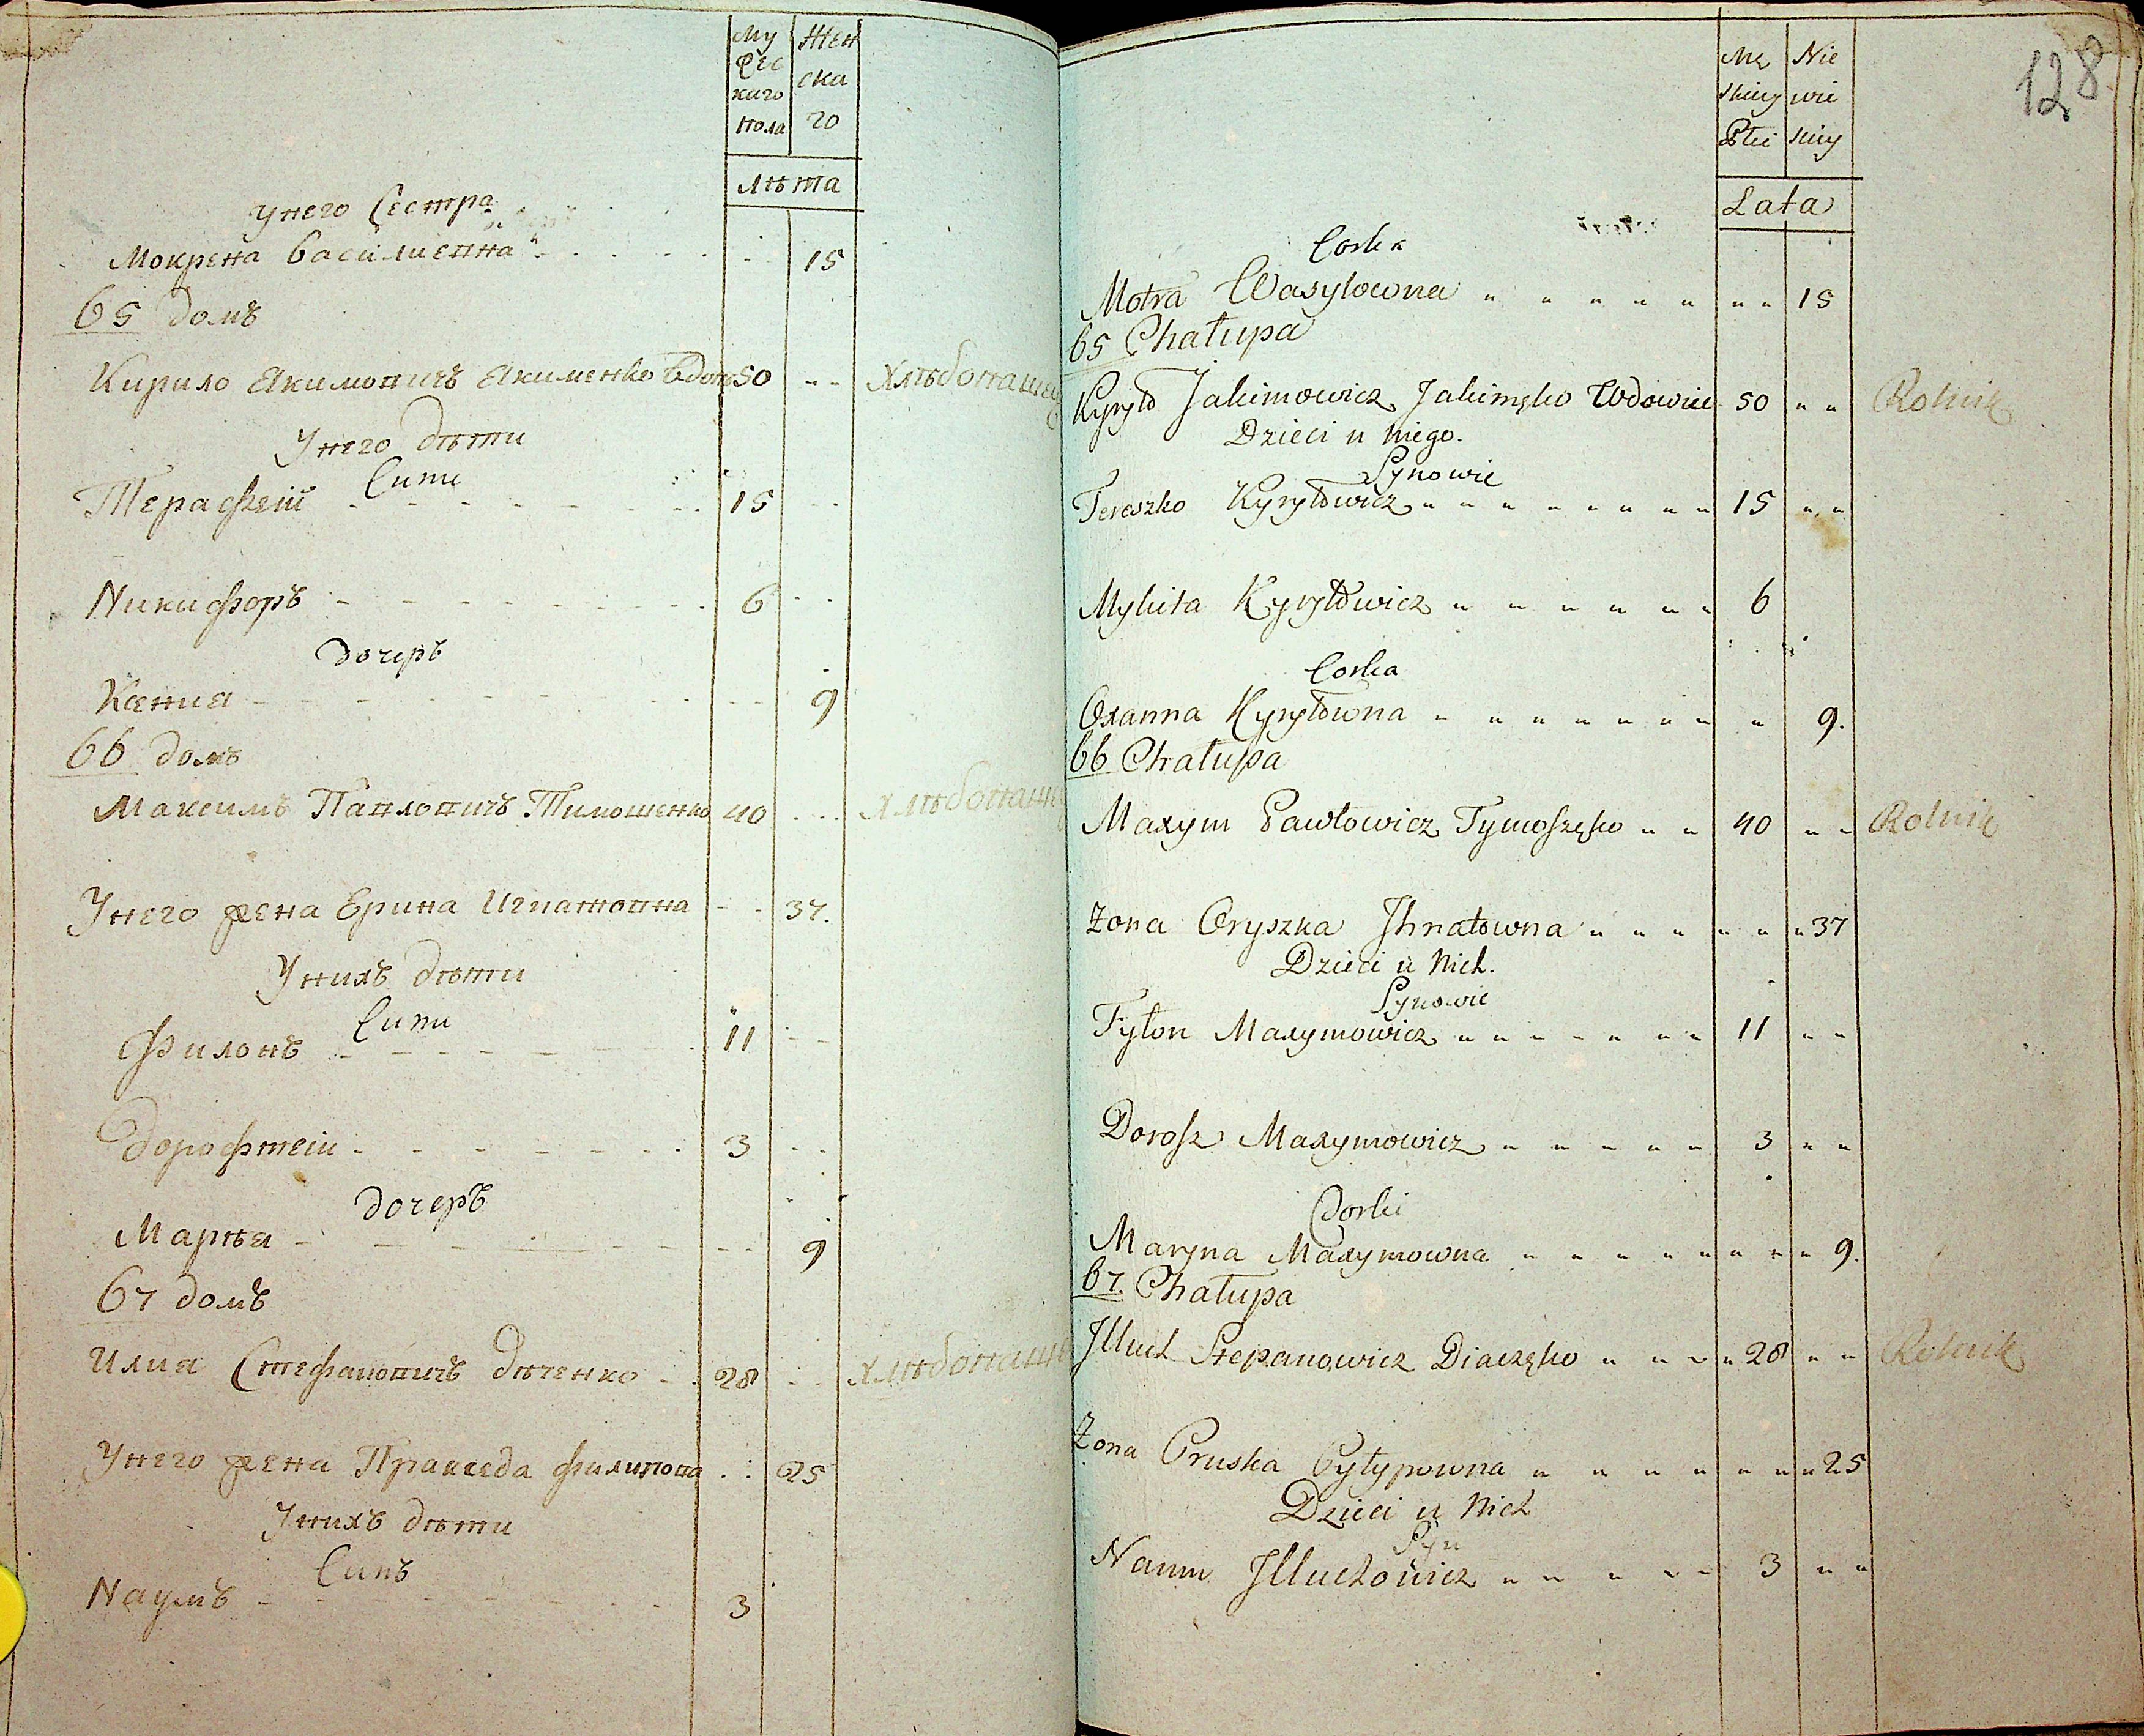 Му Жен
жес ска
каго го
пола
лѣта
Унего Сестра
Мокрена Василиевна 15
65 домъ
Кирило Якимовичъ Якименко Вдов 50 Хлѣбопаше
Унего дѣти
Сини
Терафей 15
Никифоръ 6
дочеръ
Ксения 9
66 домъ
Максимъ Павловичъ Тимошенко 40 Хлѣбопаше
Унего жена Ерина Игнатовна 37.
Унихъ дѣти
Сини
Филонъ 11
Дорофтей 3
дочеръ
Марья 9
67 домъ
Илиа Стефановичъ дяченко 28 хлѣбопаше
Унего жена Пракседа филипова 25
Унихъ дѣти
Синъ
Наумъ 3
128
Mę Nie
skiey wie
Płci skiey
Lata
Corka
Motra Wasylowna 15
65 Chałupa
Kyryło Jakimowicz Jakimęko Wdowiec 50 Rolnik
Dzieci u niego.
Synowie
Tereszko Kyryłowicz 15
Mykita Kyryłowicz 6
Corka
Oxanna Kyryłowna 9.
66 Chałupa
Maxym Pawłowicz Tymoszęko 40 Rolnik
Żona Oryszka Jhnatowna 37
Dzieci u Nich.
Synowie
Fyłon Maxymowicz 11
Dorosz Maxymowicz 3
Corki
Maryna Maxymowna 9.
67. Chałupa
Jlluch Stepanowicz Diaczęko 28 Rolnik
Żona Pruska Pyłypowna 25
Dzieci u Nich
Syn
Naum Jlluchowicz 3